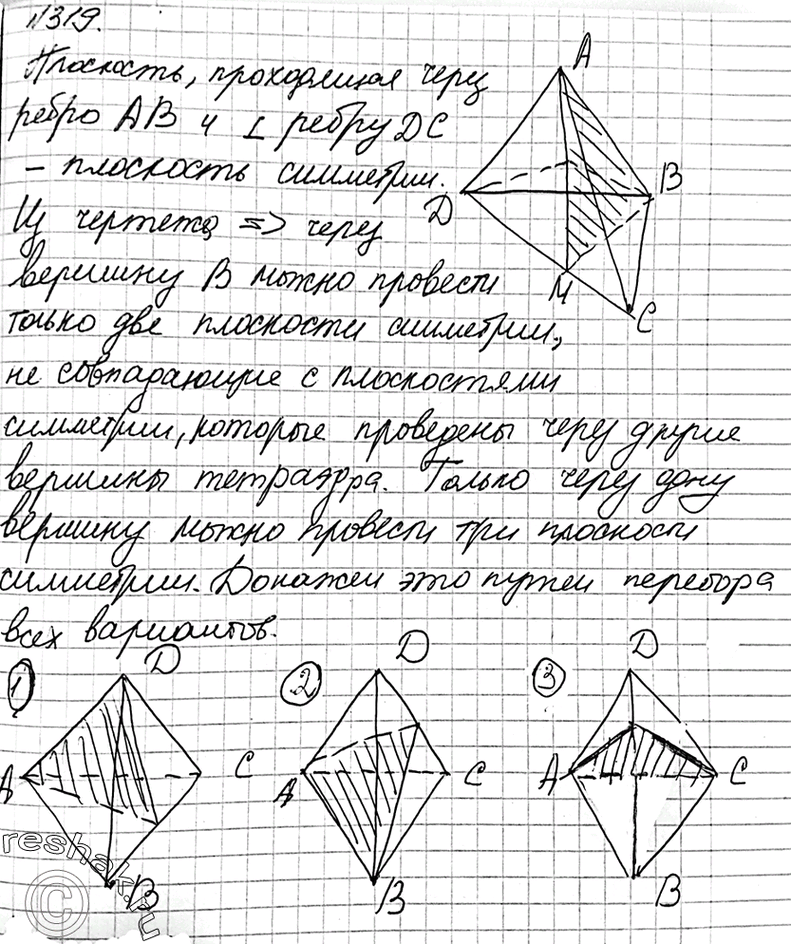 N319.
Плоскость, проходящая через
ребро AB и ⊥ ребру DC
– плоскость симметрии.
Из чертежа => через
вершину B можно провести
только две плоскости симметрии,
не совпадающие с плоскостями
симметрии, которые проведены через другие
вершины тетраэдра. Только через одну
вершину можно провести три плоскости
симметрии. Докажем это путем перебора
всех вариантов.
A
B
D
M
C
1
D
A
C
B
2
D
A
C
B
3
D
A
C
B
reshak.ru
©